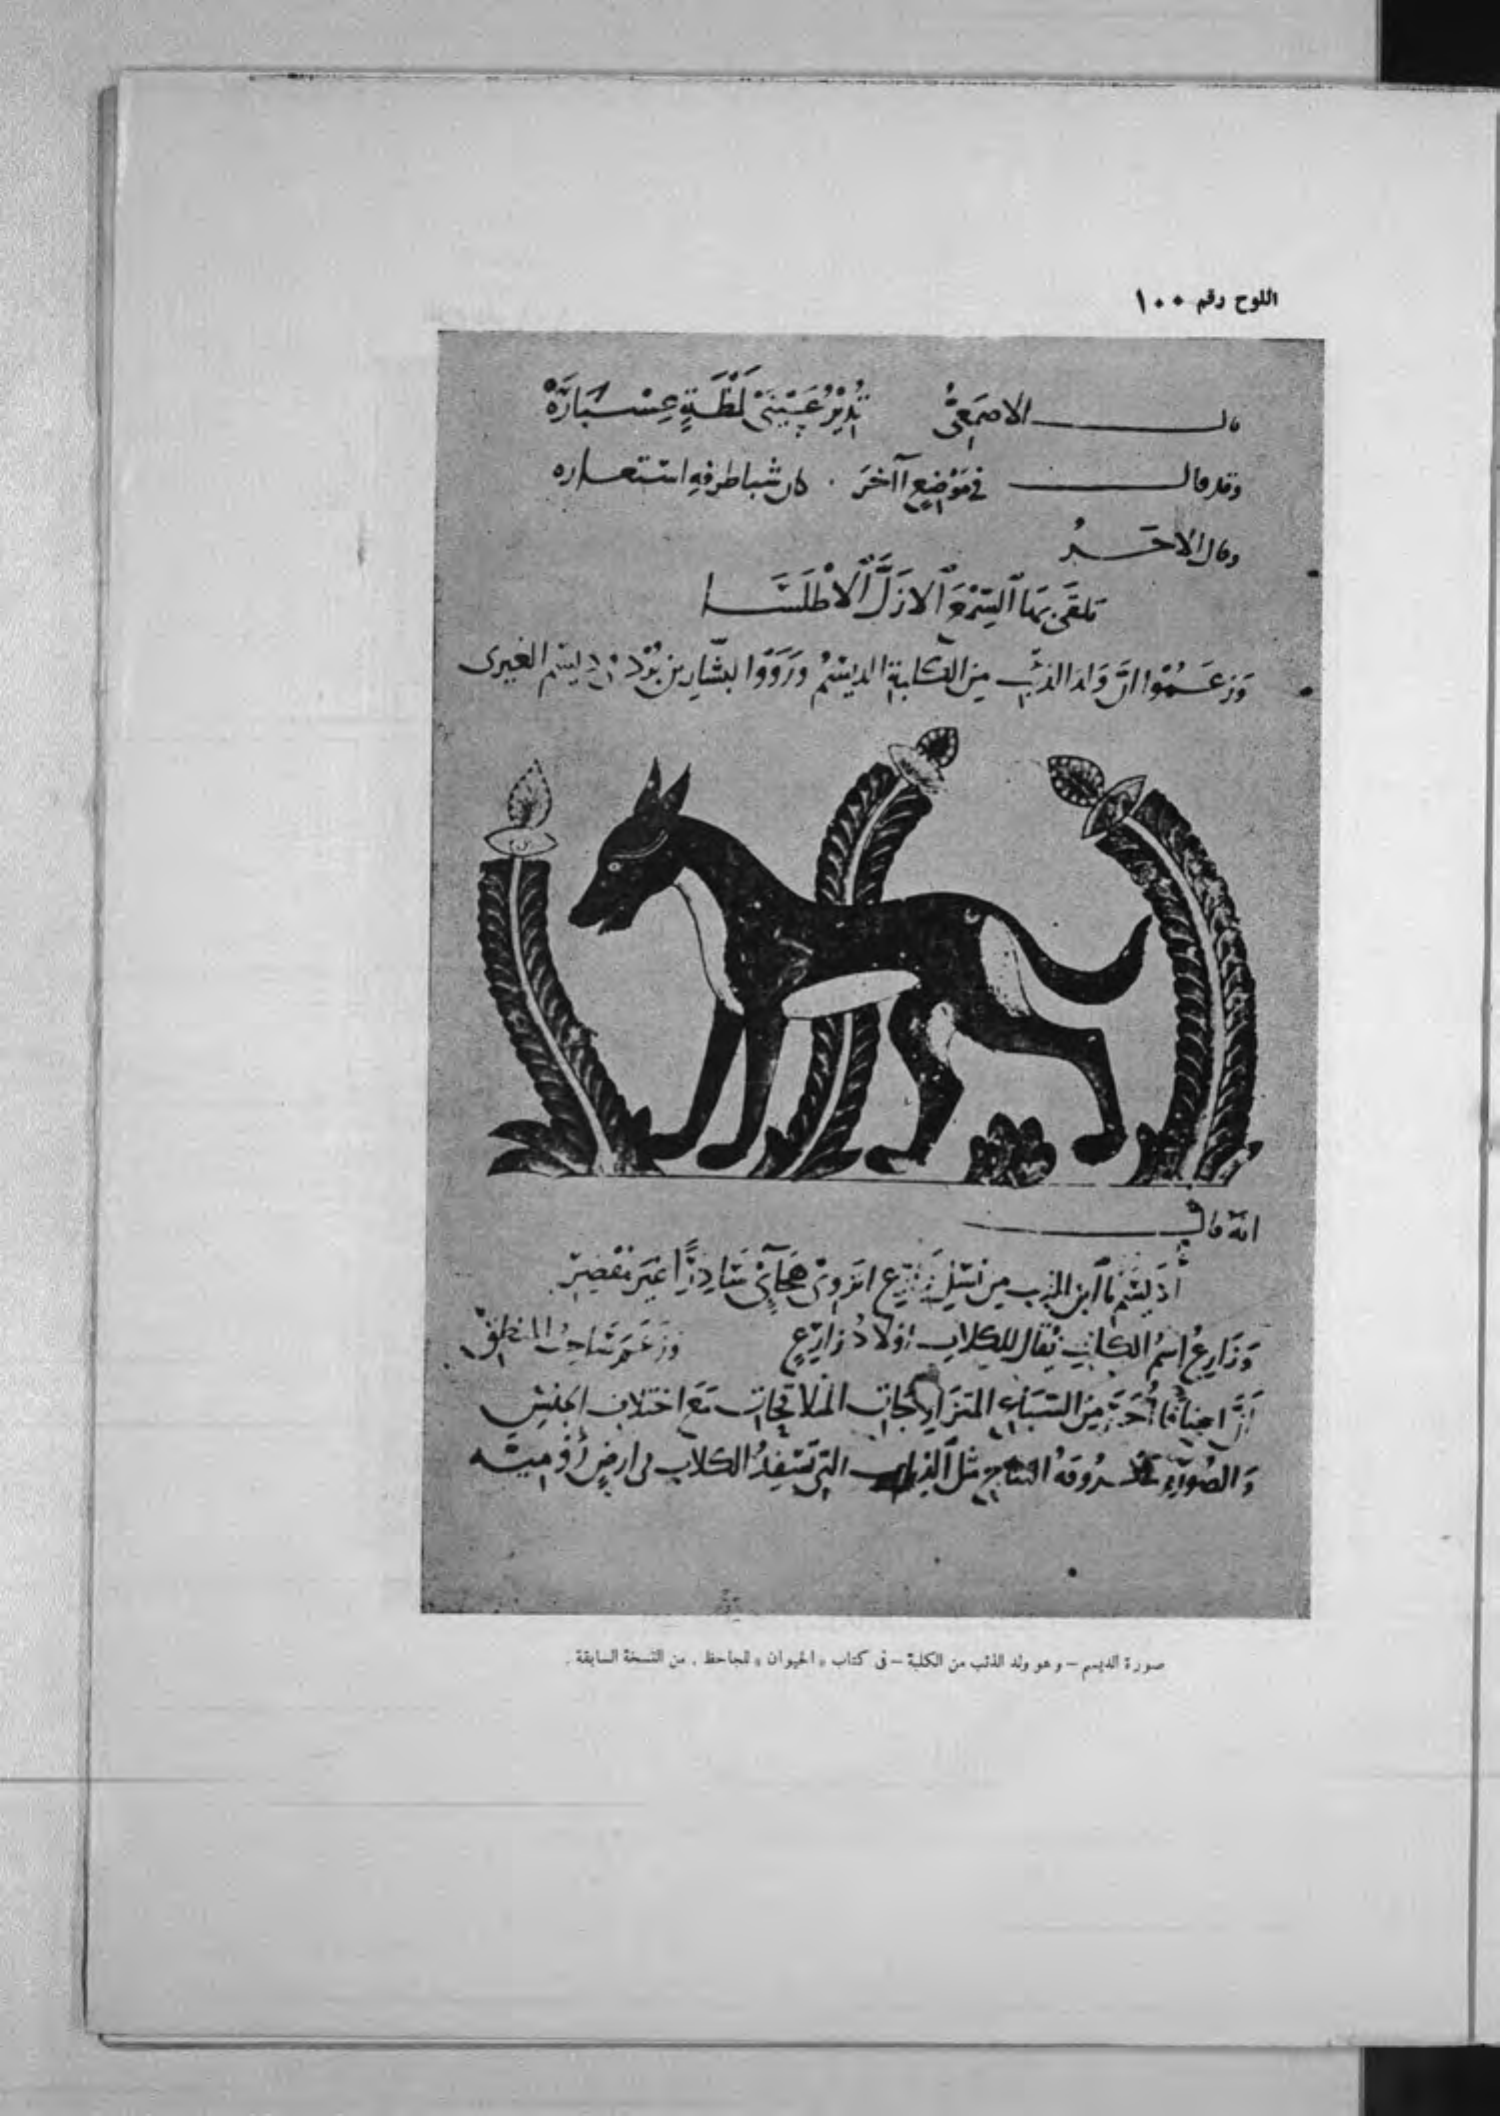 اللوح رقم ١٠٠
قال الاصمَعِيُّ تُدِيْرُ عَيْنَيْ لَظَّةٍ عِسْبَارَهْ
وقد قال في مَوْضِعٍ آخَرَ كان شباطر فيه استعاره
وقال الاخَرُ
تلقَى بهَا السِّمْعَ الازَلَّ الاطْلَسَا
وَزَعَمُوا انَّ وَلدَ الذئب مِنَ الكلبةِ الديسَمُ ورَوَوْا لبشّارِ بن بُرْد في ديسَم العنبرى
انّهُ قال
أدَيْسَمُ يا ابن الذئب مِن نسْلِ زارِعٍ اتروى هِجَآئي سَادِرًا غيرَ مُقْصِرِ
وَزَارِعُ اسْمُ الكلب يُقَال للكلاب أوْلادُ زارِعٍ وَزَعَمَ صَاحِبُ المنطق
أنَّ اصنافًا أُخَرَ مِنَ السّبَاعِ المتزَاوجَات المتلاقحات مَعَ اختلاف الجنْسِ
وَالصُوَرِ معروفة النتاج مثْل الذئاب التى تَسْفِدُ الكلاب فى ارضِ رُومِيَّه
صورة الديسم – وهو ولد الذئب من الكلبة – فى كتاب « الحيوان » للجاحظ . من النسخة السابقة .